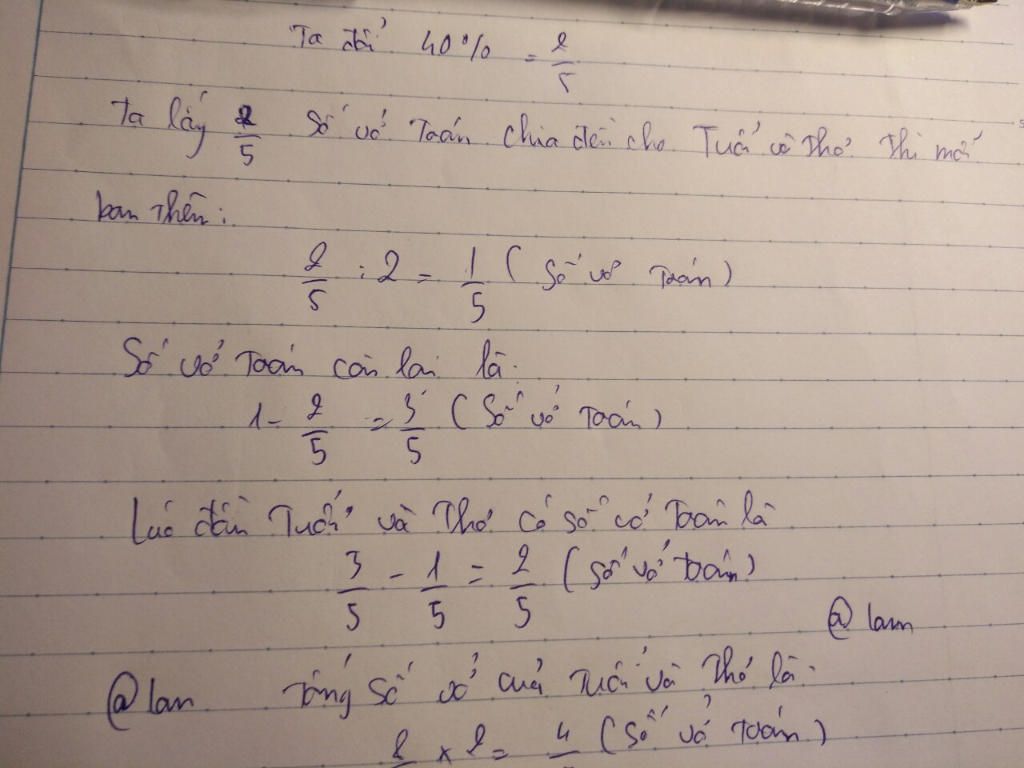 Ta đổi 40% = 2/5
Ta lấy 2/5 Số vở Toán chia đều cho Tuổi và Thơ thì mỗi
bạn thêm:
2/5 : 2 = 1/5 (Số vở Toán)
Số vở Toán còn lại là:
1 - 2/5 = 3/5 (Số vở Toán)
Lúc đầu Tuổi và Thơ có số vở Toán là
3/5 - 1/5 = 2/5 (Số vở toán)
@lam
@lan Tổng Số vở của Tuổi và Thơ là:
2 × 2 = 4 (Số vở Toán)